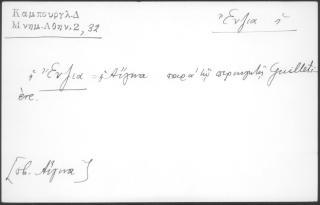 Καμπουρογλ.Δ
Μνημ.Αθην.2,32
Ἔνγια ἡ
ἡ Ἔνγια = ἡ Αἴγινα παρὰ τῷ περιηγητῇ Guilleti-
ère.
[σβ. Αἴγινα]